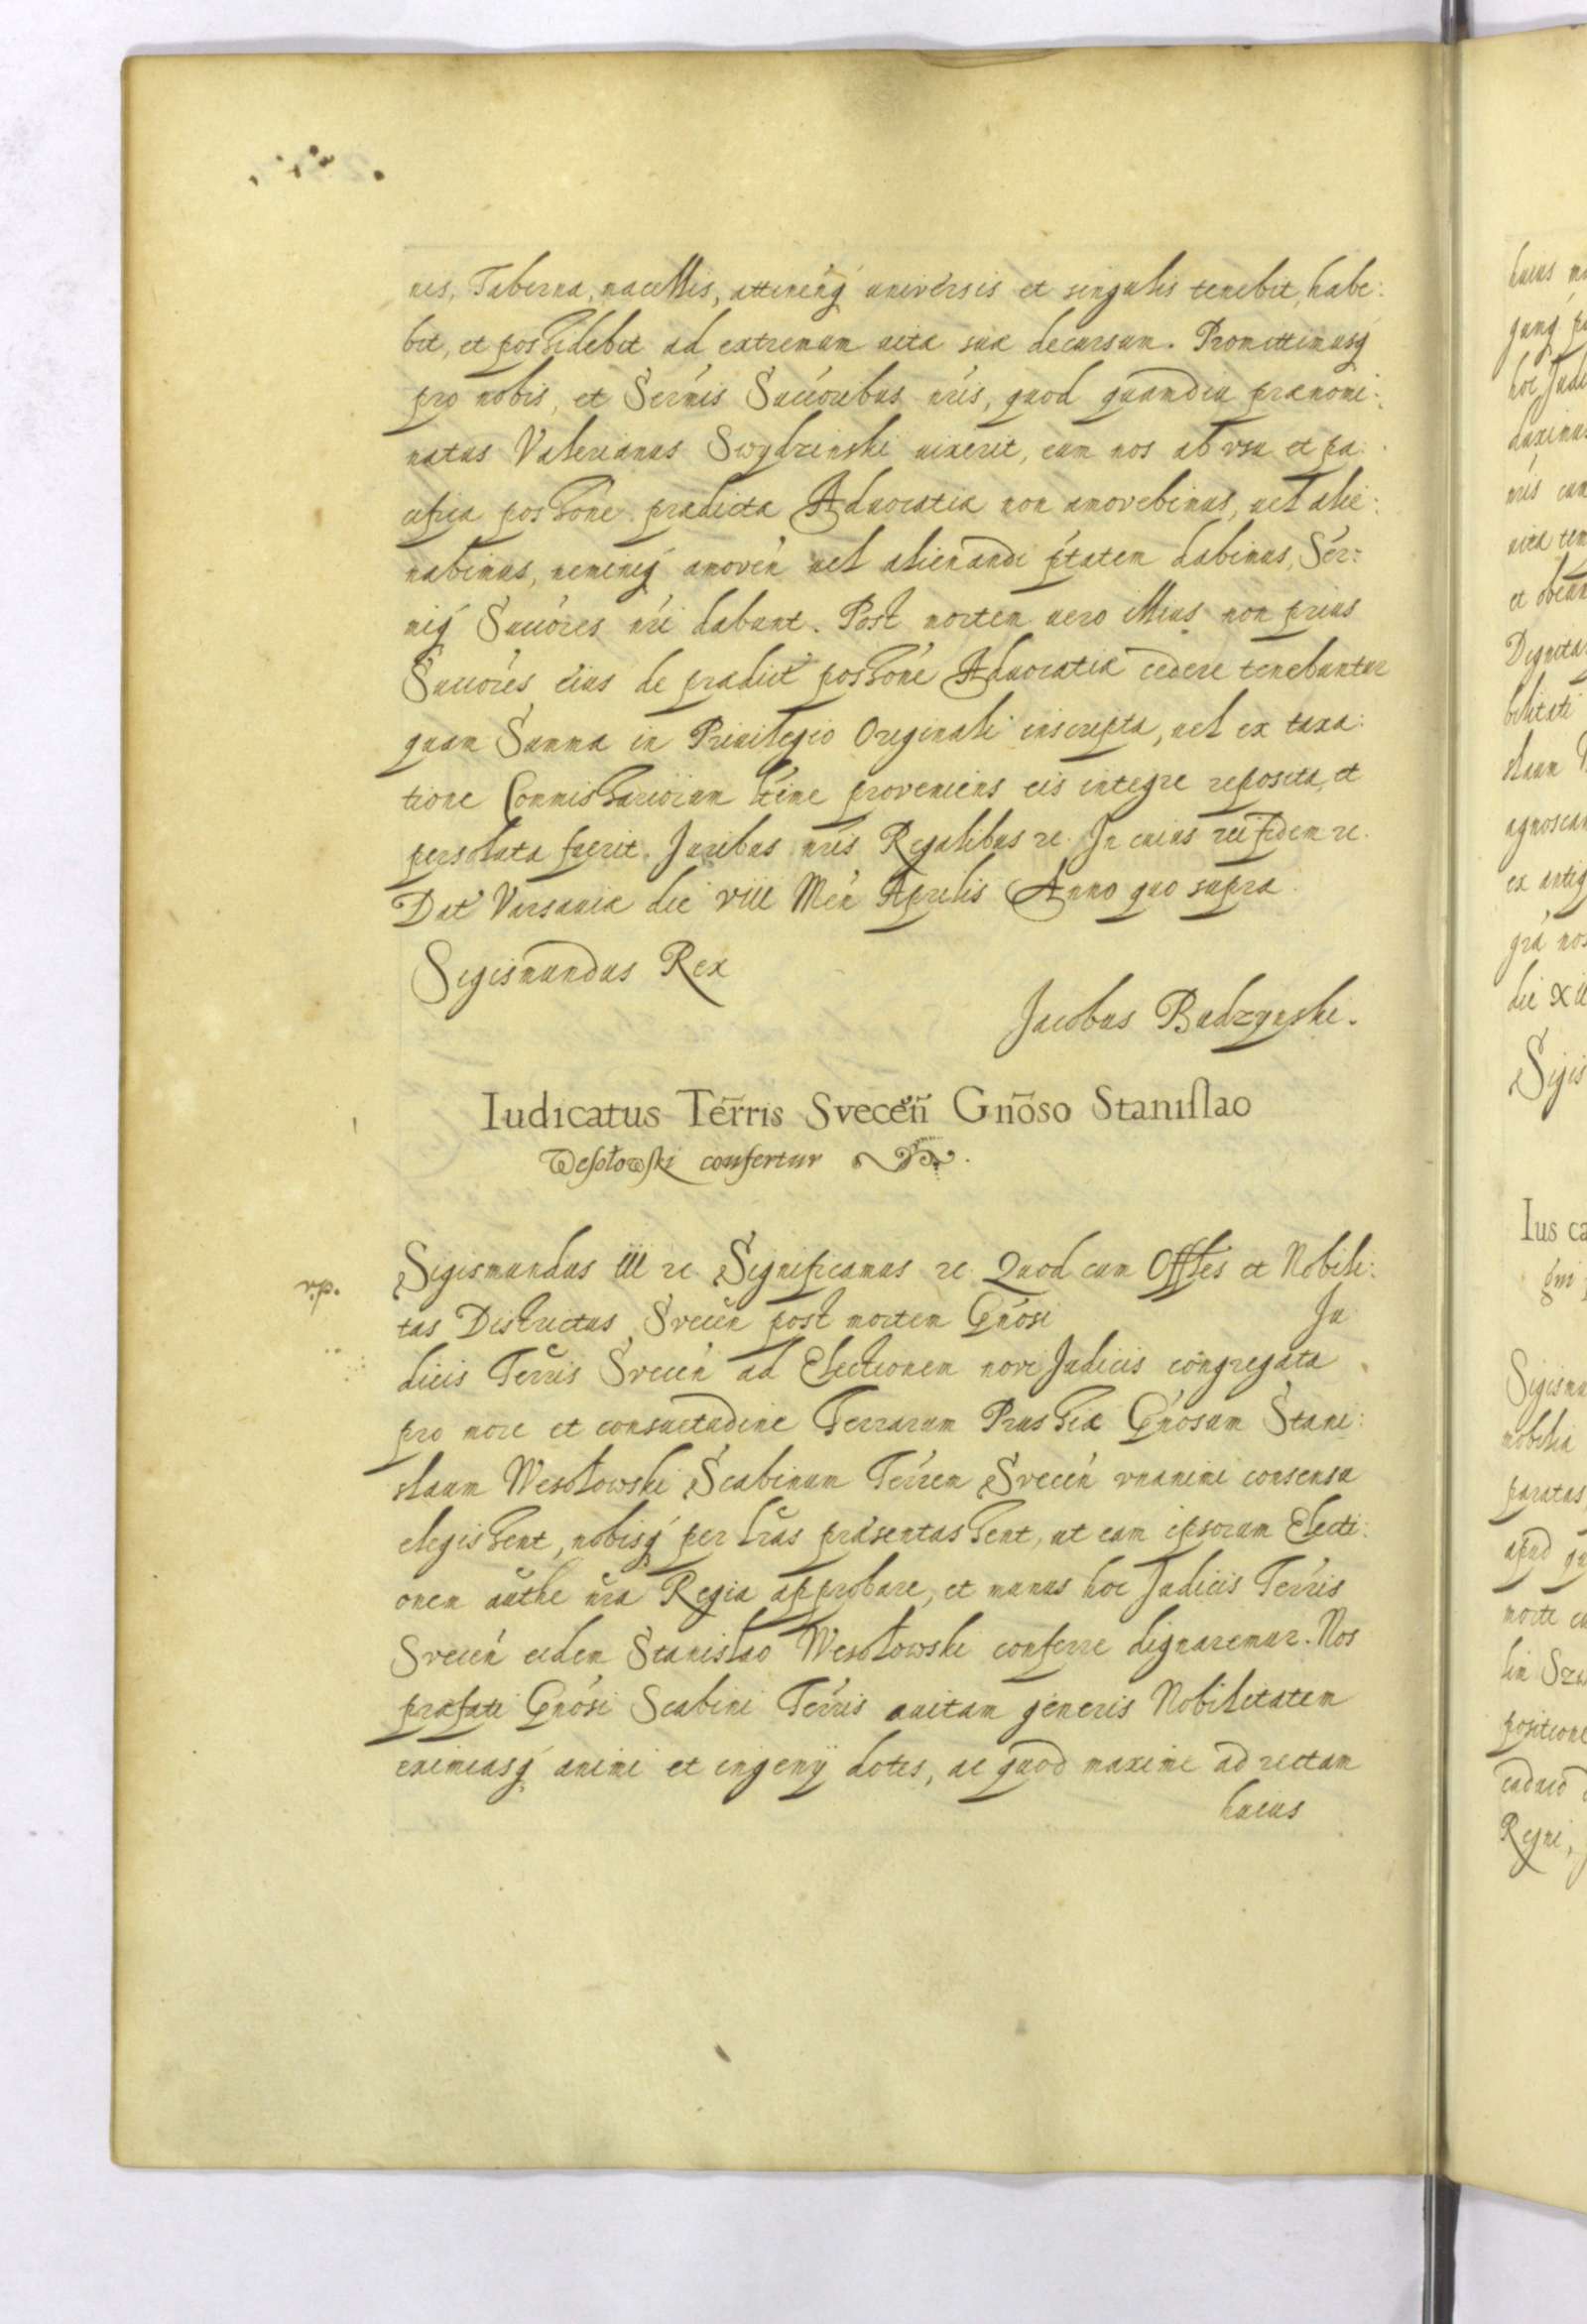 nis, Taberna, macellis, attinenq́ universis et singulis tenebit, habe:
bit, et possidebit ad extremum uitæ suæ decursum. Promittimusq́
pro nobis, et Sernis Succoribus nris, quod quamdiu prænomi:
natus Valerianus Swydzinski uixerit, eum nos ab vsu et pa:
cifica possone prædictæ Aduocatiæ non amovebimus, uel alie:
nabimus, neminiq́ amoven uel alienandi ptatem dabimus, Ser:
niq́ Succores nri dabunt. Post mortem uero illius non prius
Succores eius de prædict possone Aduocatiæ cedere tenebuntur
quam Summa in Priuilegio Originali inscripta, uel ex taxa:
tione Commissariorum ltime proveniens eis integre reposita, et
persoluta fuerit. Juribus nris Regalibus zc. In cuius rei fidem zc.
Dat Varsauiæ die VIII Men Aprilis Anno quo supra.
Sigismundus Rex
Jacobus Badzynski.
Iudicatus Terr̃is Svecen̄ Gnõso Stanislao
Wesołowski confertur
rp.
Sigismundus III zc Significamus zc Quod cum Offles et Nobili:
tas Districtus Svecen post mortem Gnosi Ju
dicis Terris Svecen ad Electionem novi Judicis congregata
pro more et consuetudine Terrarum Prussiæ Gnosum Stani:
slaum Wesołowski Scabinum Terrem Svecen vnanimi consensu
elegissent, nobisq́ per lras præsentassent, ut eam ipsorum Electi:
onem authe nra Regia approbare, et munus hoc Judicis Terris
Svecen eidem Stanislao Wesołowski conferre dignaremur. Nos
præfati Gnosi Scabini Terris auitam generis Nobilitatem
eximiasq́ animi et ingenij dotes, ac quod maxime ad rectam
huius